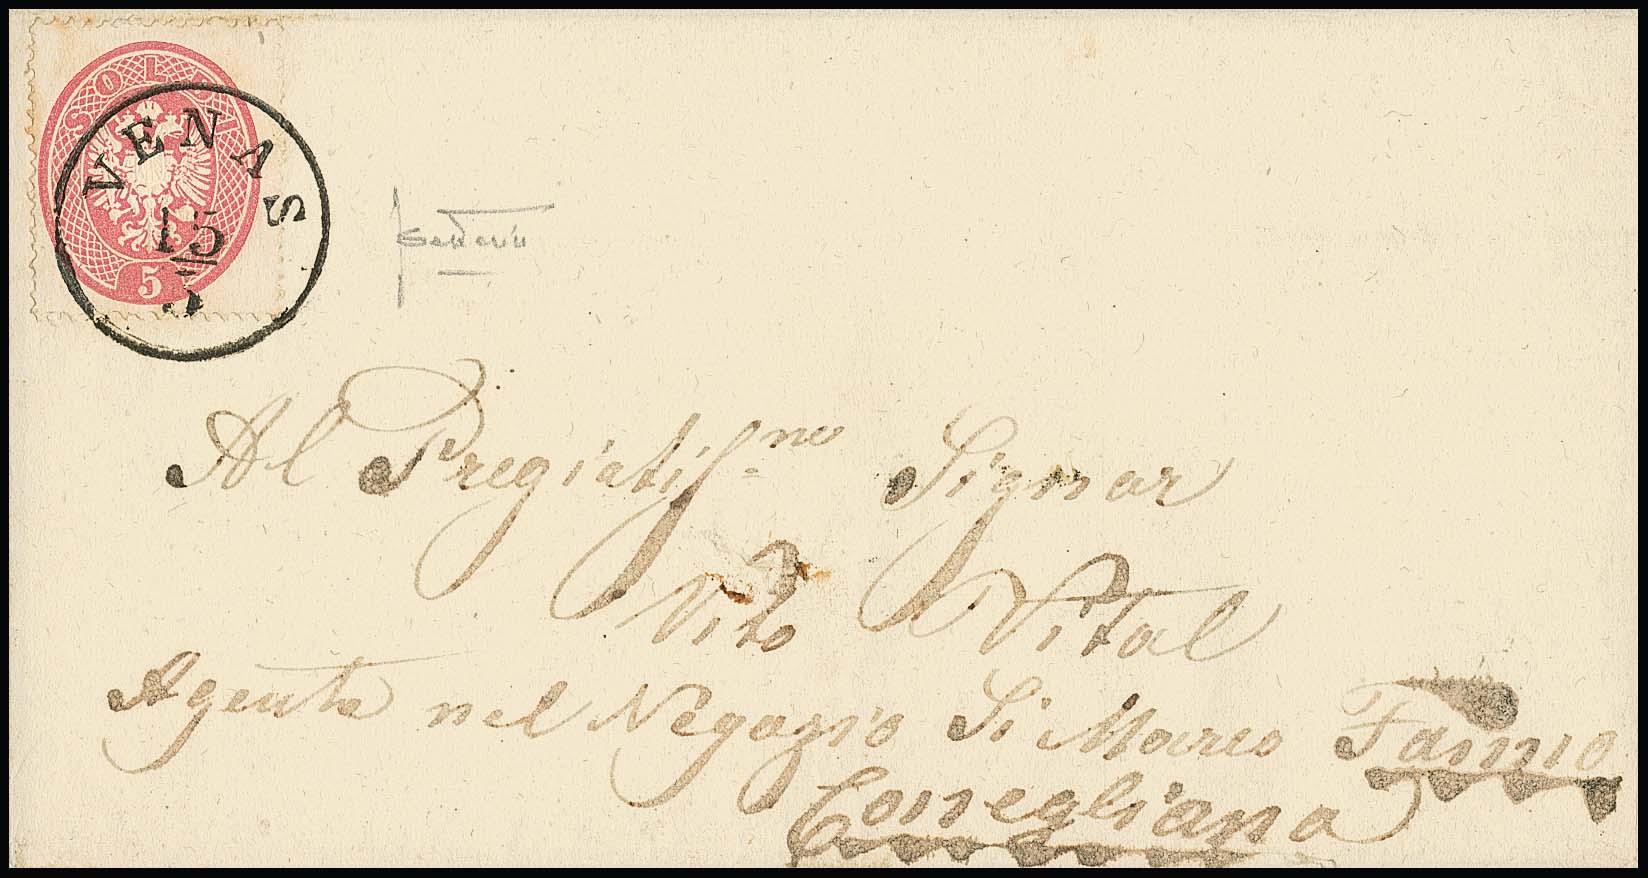 SOLDI
5
VENAS
15
Al Pregiatis.mo Signor
Vito Vital
Agente nel Negozio Si Marco Fanno
Conegliano